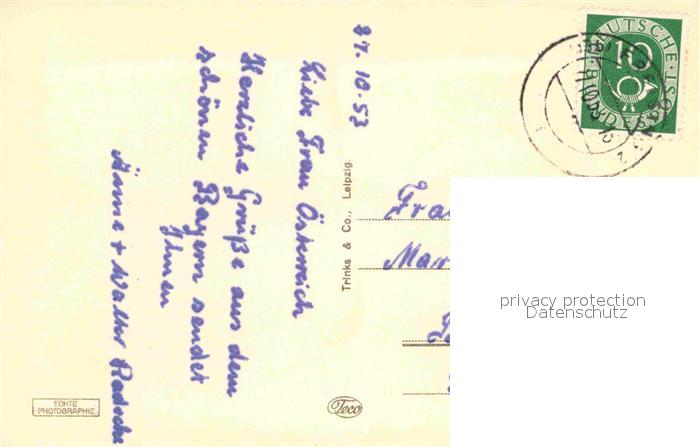 27.10.53
Liebe Frau Österreich
Herzliche Grüße aus dem
schönen Bayern sendet
Ihnen
Änne + Walter
Trinks & Co., Leipzig.
ECHTE
PHOTOGRAPHIE
Teco
DEUTSCHE
BUNDESPOST
10
privacy protection
Datenschutz